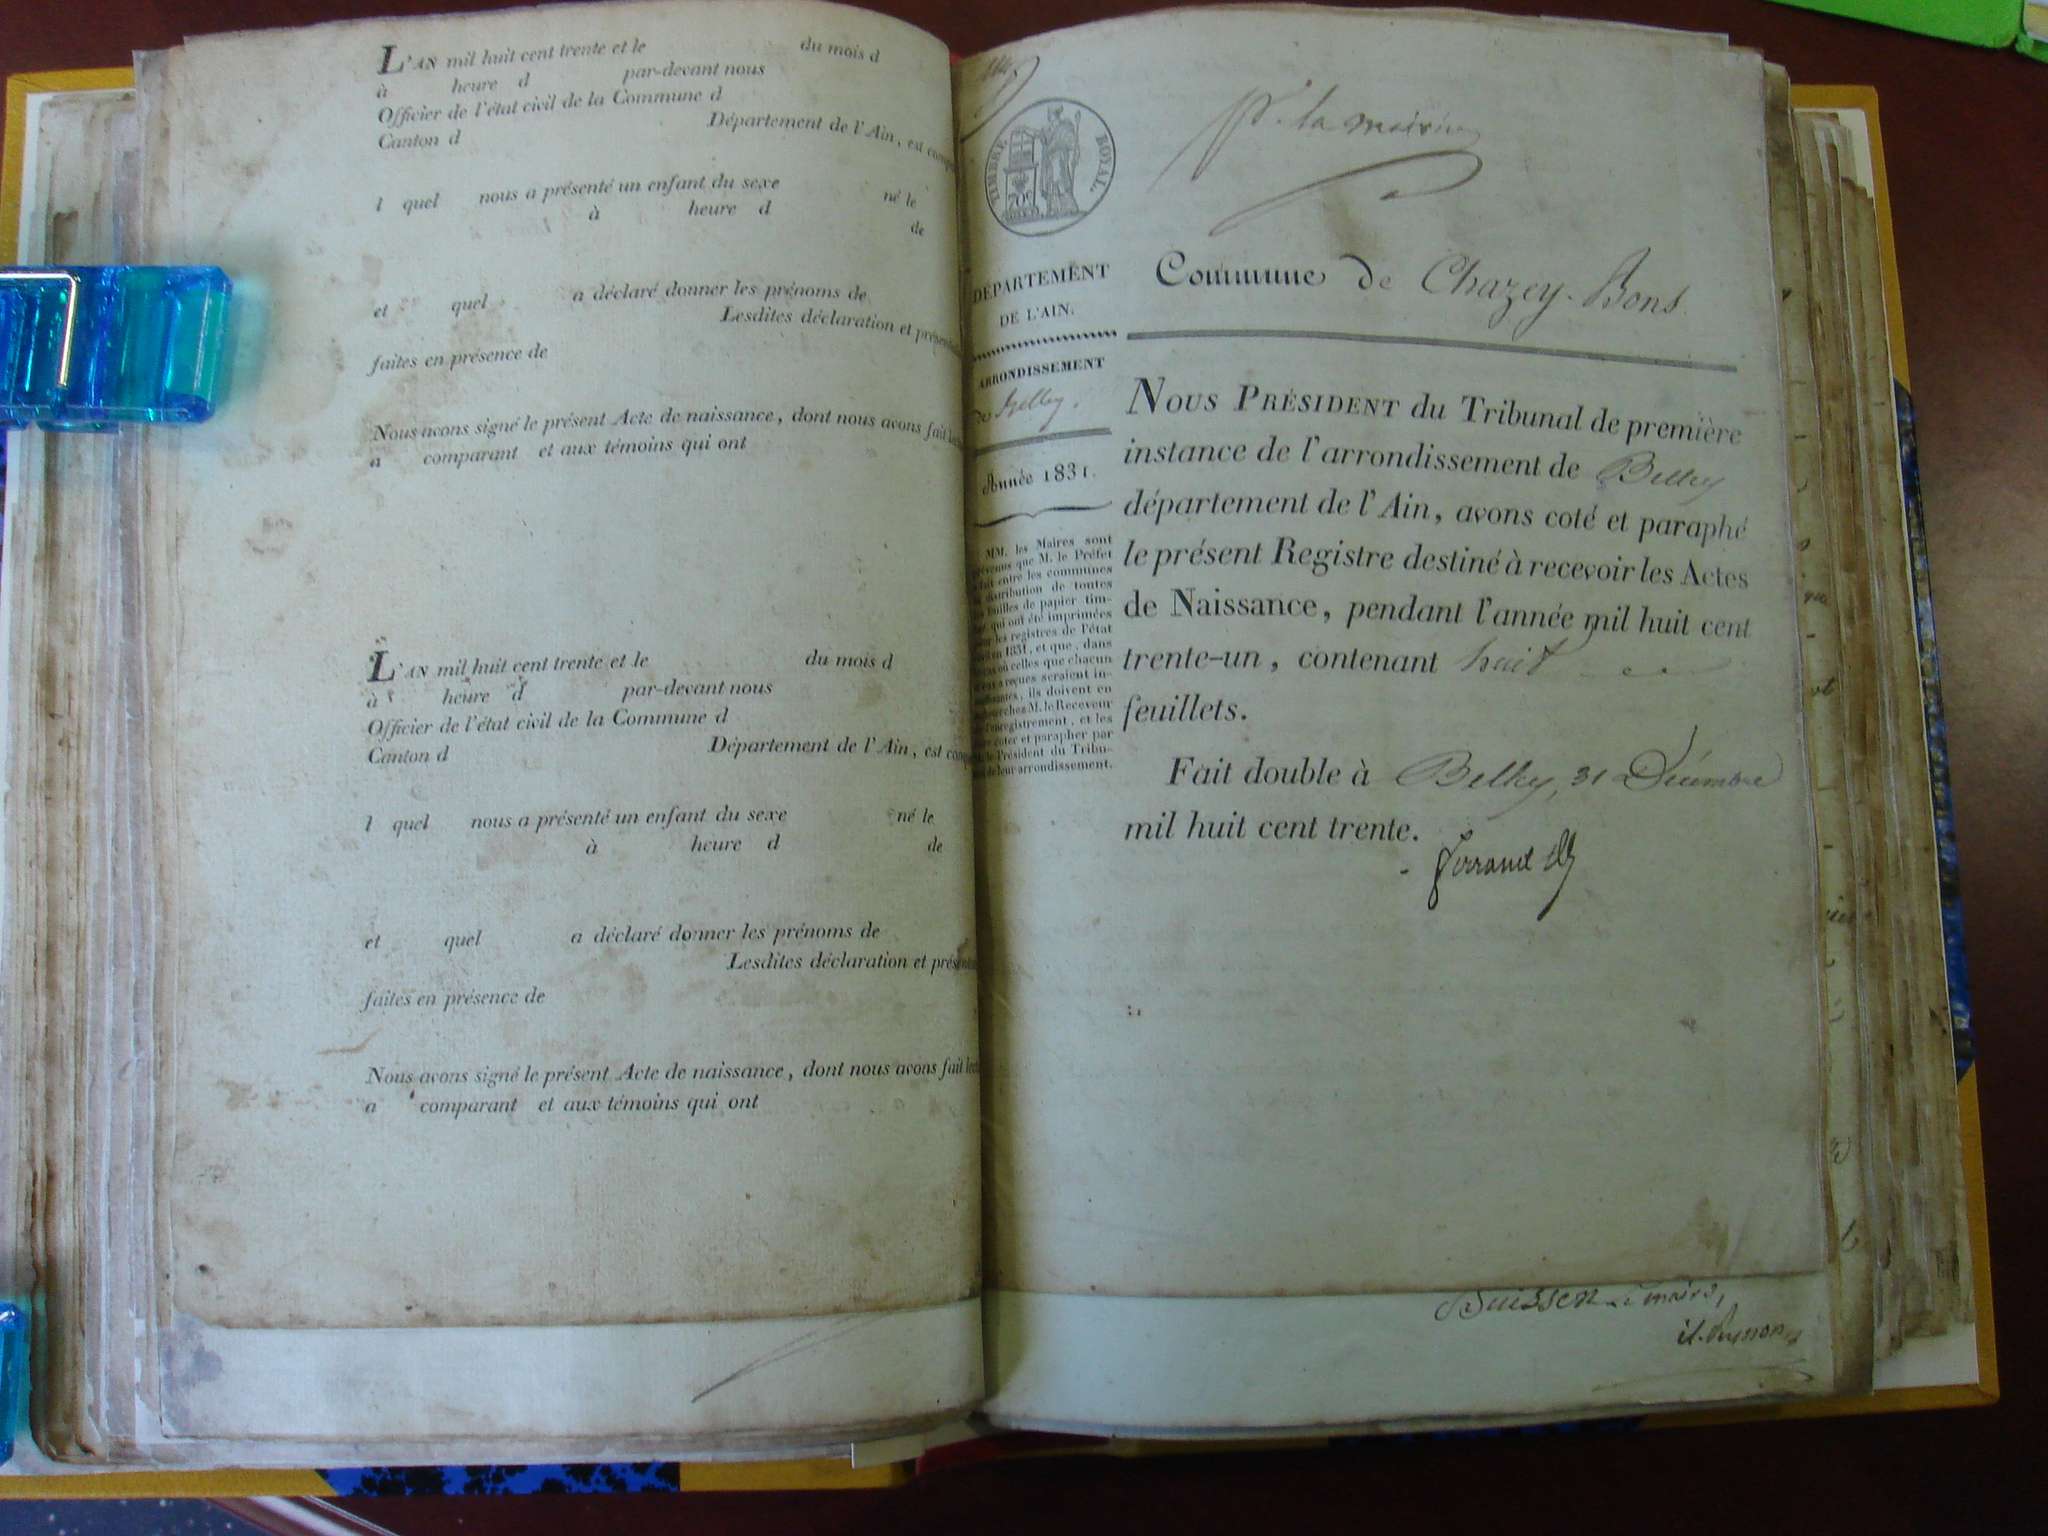 L'AN mil huit cent trente et le du mois d
à heure d par-devant nous
Officier de l'état civil de la Commune d
Canton d Département de l'Ain, est
l quel nous a présenté un enfant du sexe né le
à heure d de
et quel a déclaré donner les prénoms de
Lesdites déclaration et
faites en présence de
Nous avons signé le présent Acte de naissance, dont nous avons fait
a comparant et aux témoins qui ont
L'AN mil huit cent trente et le du mois d
à heure d par-devant nous
Officier de l'état civil de la Commune d
Canton d Département de l'Ain, est
l quel nous a présenté un enfant du sexe né le
à heure d de
et quel a déclaré donner les prénoms de
Lesdites déclaration et
faites en présence de
Nous avons signé le présent Acte de naissance, dont nous avons fait
a comparant et aux témoins qui ont
la mairie
TIMBRE ROYAL.
70c
DÉPARTEMENT
DE L'AIN.
ARRONDISSEMENT
de Belley.
Année 1831.
MM. les Maires sont
que M. le Préfet
entre les communes
distribution de toutes
feuilles de papier tim-
qui ont été imprimées
les registres de l'état
en 1831, et que, dans
celles que chacun
reçues seraient in-
ils doivent en
chez M. le Receveur
et les
coter et parapher par
le Président du Tribu-
de leur arrondissement.
Commune de Chazey-Bons
NOUS PRÉSIDENT du Tribunal de première
instance de l'arrondissement de Belley
département de l'Ain, avons coté et paraphé
le présent Registre destiné à recevoir les Actes
de Naissance, pendant l'année mil huit cent
trente-un, contenant huit
feuillets.
Fait double à Belley, 31 Décembre
mil huit cent trente.
Buisson maire,